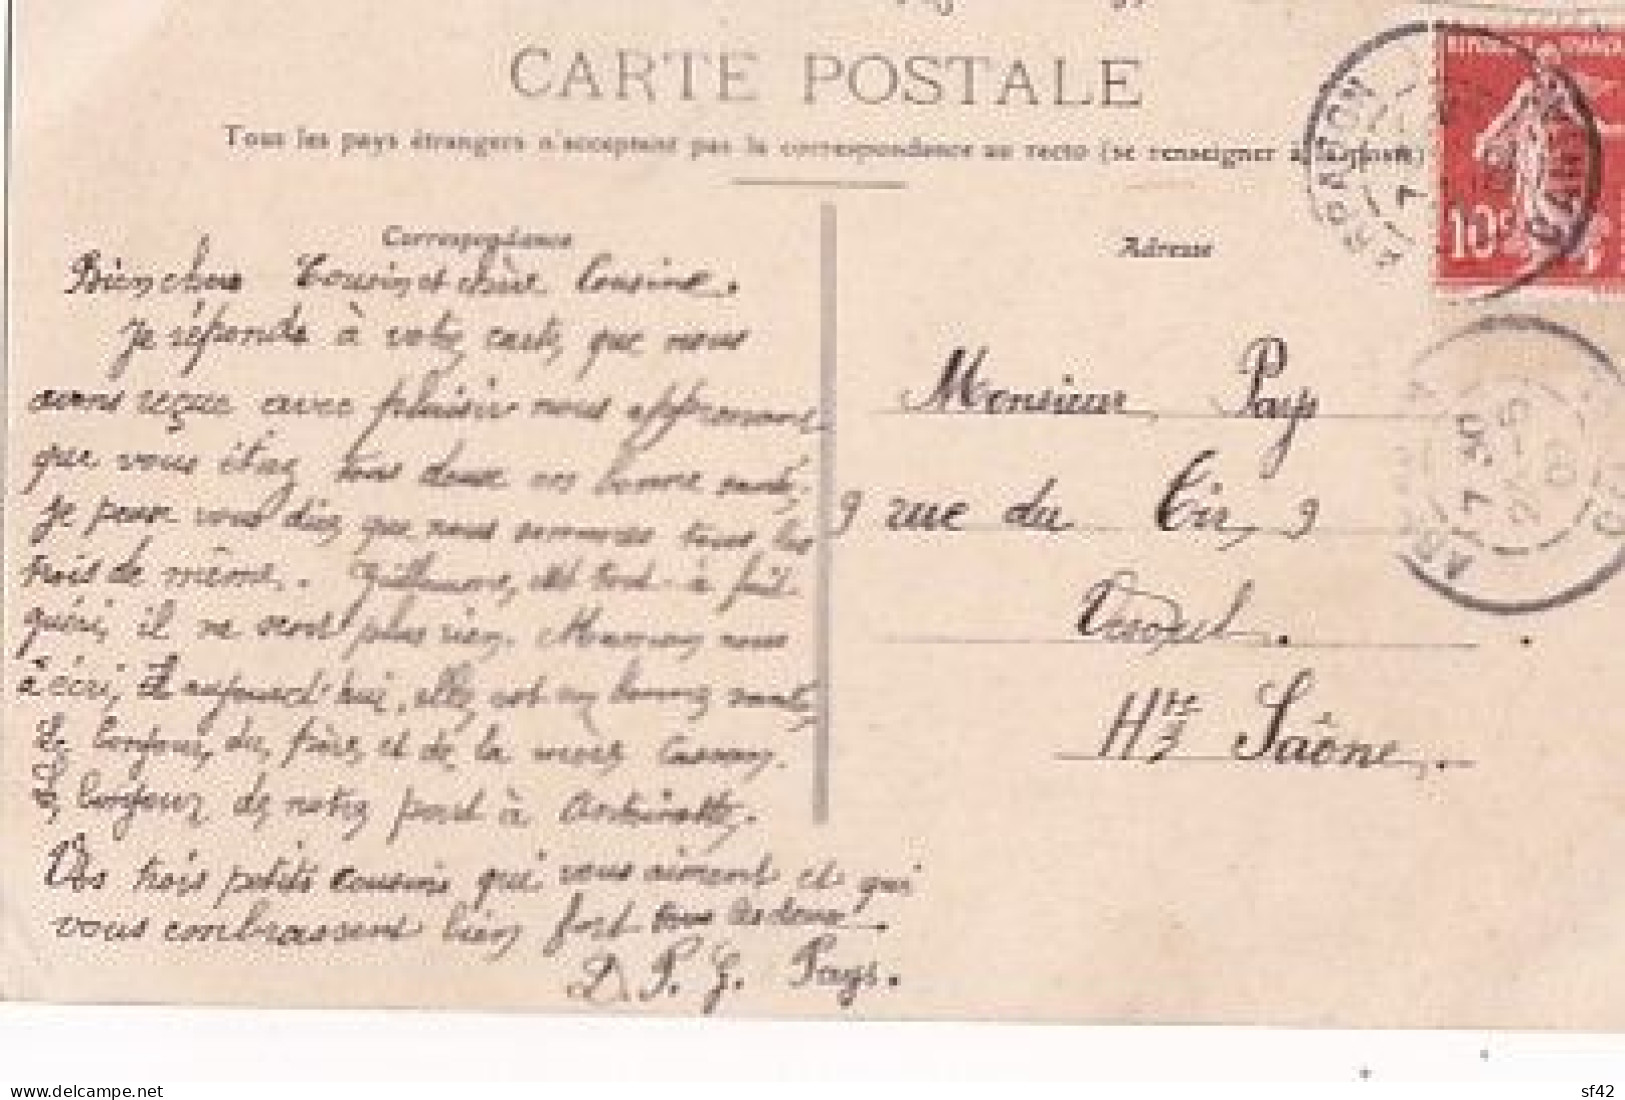 CARTE POSTALE
Tous les pays étrangers n'acceptent pas la correspondance au recto (se renseigner à la poste)
Correspondance
Bien cher Cousin et chère Cousine.
Je réponds à votre carte, que nous
avons reçue avec plaisir nous apprenant
que vous étez tous deux en bonne santé,
je peux vous dire que nous sommes tous les
trois de même. Guillaume, est tout à fait
guéri, il ne sent plus rien. Maman nous
à écri, aujourd'hui, elle, est en bonne santé,
Le bonjour, du père, et de la mère Casson.
Le bonjour de notre part à Antoinette.
Vos trois petits cousins qui vous aiment et qui
vous embrassent bien fort tous les deux.
D. P. G. Pays.
Adresse
Monsieur Pays
9 rue du Cir, 9
Vesoul.
Hte Saône.
REPUBLIQUE FRANÇAISE
10c
7
17 30
2-5
09
Delcampe.net
sf42